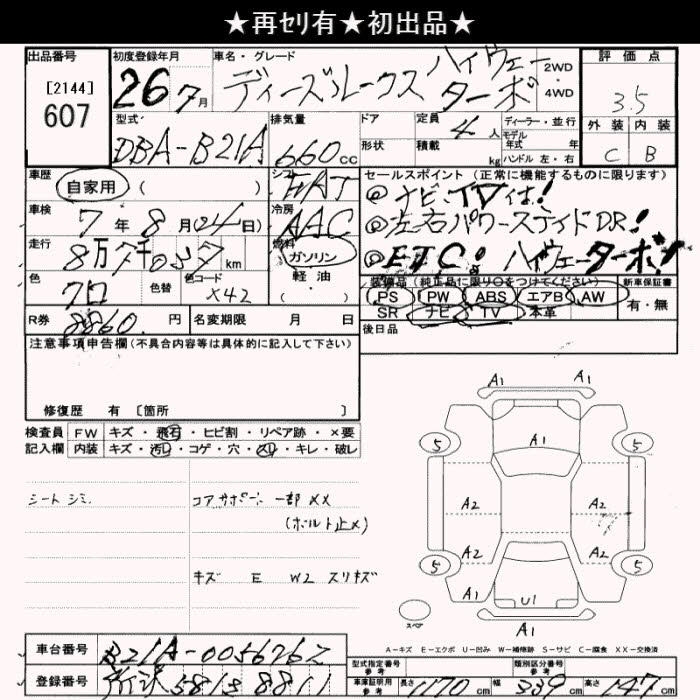 ★再セリ有★初出品★
出品番号 初度登録年月 車名・グレード 評価点
[2144]
607
26 7月
ディーズルークス ハイウェー ターボ
2WD
4WD
3.5
外装 内装
C B
型式 排気量 ドア 定員 4人 ディーラー・並行
DBA-B21A 660cc
形状 積載 kg
モデル年式 年
ハンドル 左・右
車歴 シフト セールスポイント (正常に機能するものに限ります)
自家用 ( ) FAT
◎ナビ、TV付!
車検 7年 8月(24日) 冷房 AAC
◎左右パワースライドDR!
走行 8万7千037km 燃料 ガソリン
軽油
( )
◎ETC! ハイウェーターボ!
色 クロ 色替 色コード X42
装備品 (純正品に限り○をつけてください) 新車保証書
PS PW ABS エアB AW
SR ナビ TV 本革
有・無
R券 8860円 名変期限 月 日
後日品
注意事項申告欄(不具合内容等は具体的に記入して下さい)
修復歴 有 [箇所 ]
検査員 FW キズ・飛石・ヒビ割・リペア跡・×要
記入欄 内装 キズ・汚れ・コゲ・穴・スレ・キレ・破レ
シートシミ.
コアサポート 一部××
(ボルト止メ)
キズ E W2 スリキズ
A1 A1
5 A1 5
A2 A2
A2 A2
5 5
U1
A1
スペア
A-キズ E-エクボ U-凹み W-補修跡 S-サビ C-腐食 XX-交換済
車台番号 B21A-0056762
登録番号 所沢 581 8811
型式指定番号 参考
類別区分番号 参考
車庫証明用 参考 長さ 1170cm 幅 339cm 高さ 147cm